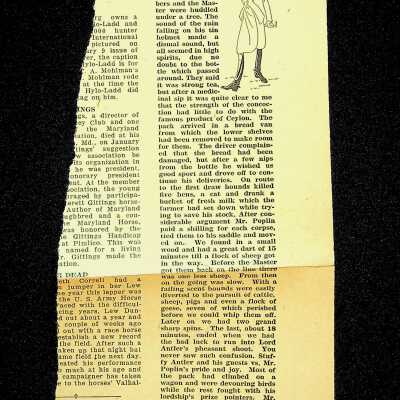 rg owns a
ylo-Ladd and
hunter
International
pictured on
9 issue of
er, the caption
ylo-Ladd is for
A. Mohlman's
mode rode
at the time the
Hylo-Ladd did
ng on him.
INGS
gs, a director of
ey Club and one
the Maryland
tion, died at his
Md., on January
ings' suggestion
association be
its organization in
he was president.
onorary president
t. At the member
iation, the young
raged by participa-
rett Gittings horse.
Author of Maryland
ughbred and a cou-
e Maryland Horse,
as honored by the
Gittings Handicap
t Pimlico. This was
named for a living
Mr. Gittings made the
ation.
DEAD
eth Correll had a
e jumper in her Lew
e year this lepper was
the U. S. Army Horse
faced with the difficul-
ing years. Lew Dun-
d out about a year and
a couple of weeks ago
out with a race horse
establish a new record
the field. After such a
aken up that night but
ame field the next day.
eated his performance
much at his age and
campaigner has taken
e to the horses' Valhal-
bers and the Mas-
ter were huddled
under a tree. The
sound of the rain
falling on his tin
helmet made a
dismal sound, but
all seemed in high
spirits, due no
doubt to the bot-
tle which passed
around. They said
it was strong tea,
but after a medic-
inal sip it was quite clear to me
that the strength of the concec-
tion had little to do with the
famous product of Ceylon. The
pack arrived in a bread van
from which the lower shelves
had been removed to make room
for them. The driver complain-
ed that the bread had been
damaged, but after a few nips
from the bottle he wished us
good sport and drove off to con-
tinue his deliveries. On route
to the first draw hounds killed
five hens, a cat and drank a
bucket of fresh milk which the
farmer had set down while try-
ing to save his stock. After cons-
iderable argument Mr. Poplin
paid a shilling for each corpse,
tied them to his saddle and mov-
ed on. We found in a small
wood and had a great dart of 15
minutes till a flock of sheep got
in the way. Before the Master
got them back on the line there
was one less sheep. From then
on the going was slow. With a
failing scent hounds were easily
diverted to the pursuit of cattle,
sheep, pigs and even a flock of
geese, seven of which perished
before we could whip them off.
Later on we had two grand
sharp spins. The last, about 18
minutes, ended when we had
the bad luck to run into Lord
Antler's pheasant shoot. You
never saw such confusion. Stuf-
fy Antler and his guests vs. Mr.
Poplin's pride and joy. Most of
the pack had climbed on a
wagon and were devouring birds
while the rest fought with his
lordship's prize pointers. Mr.